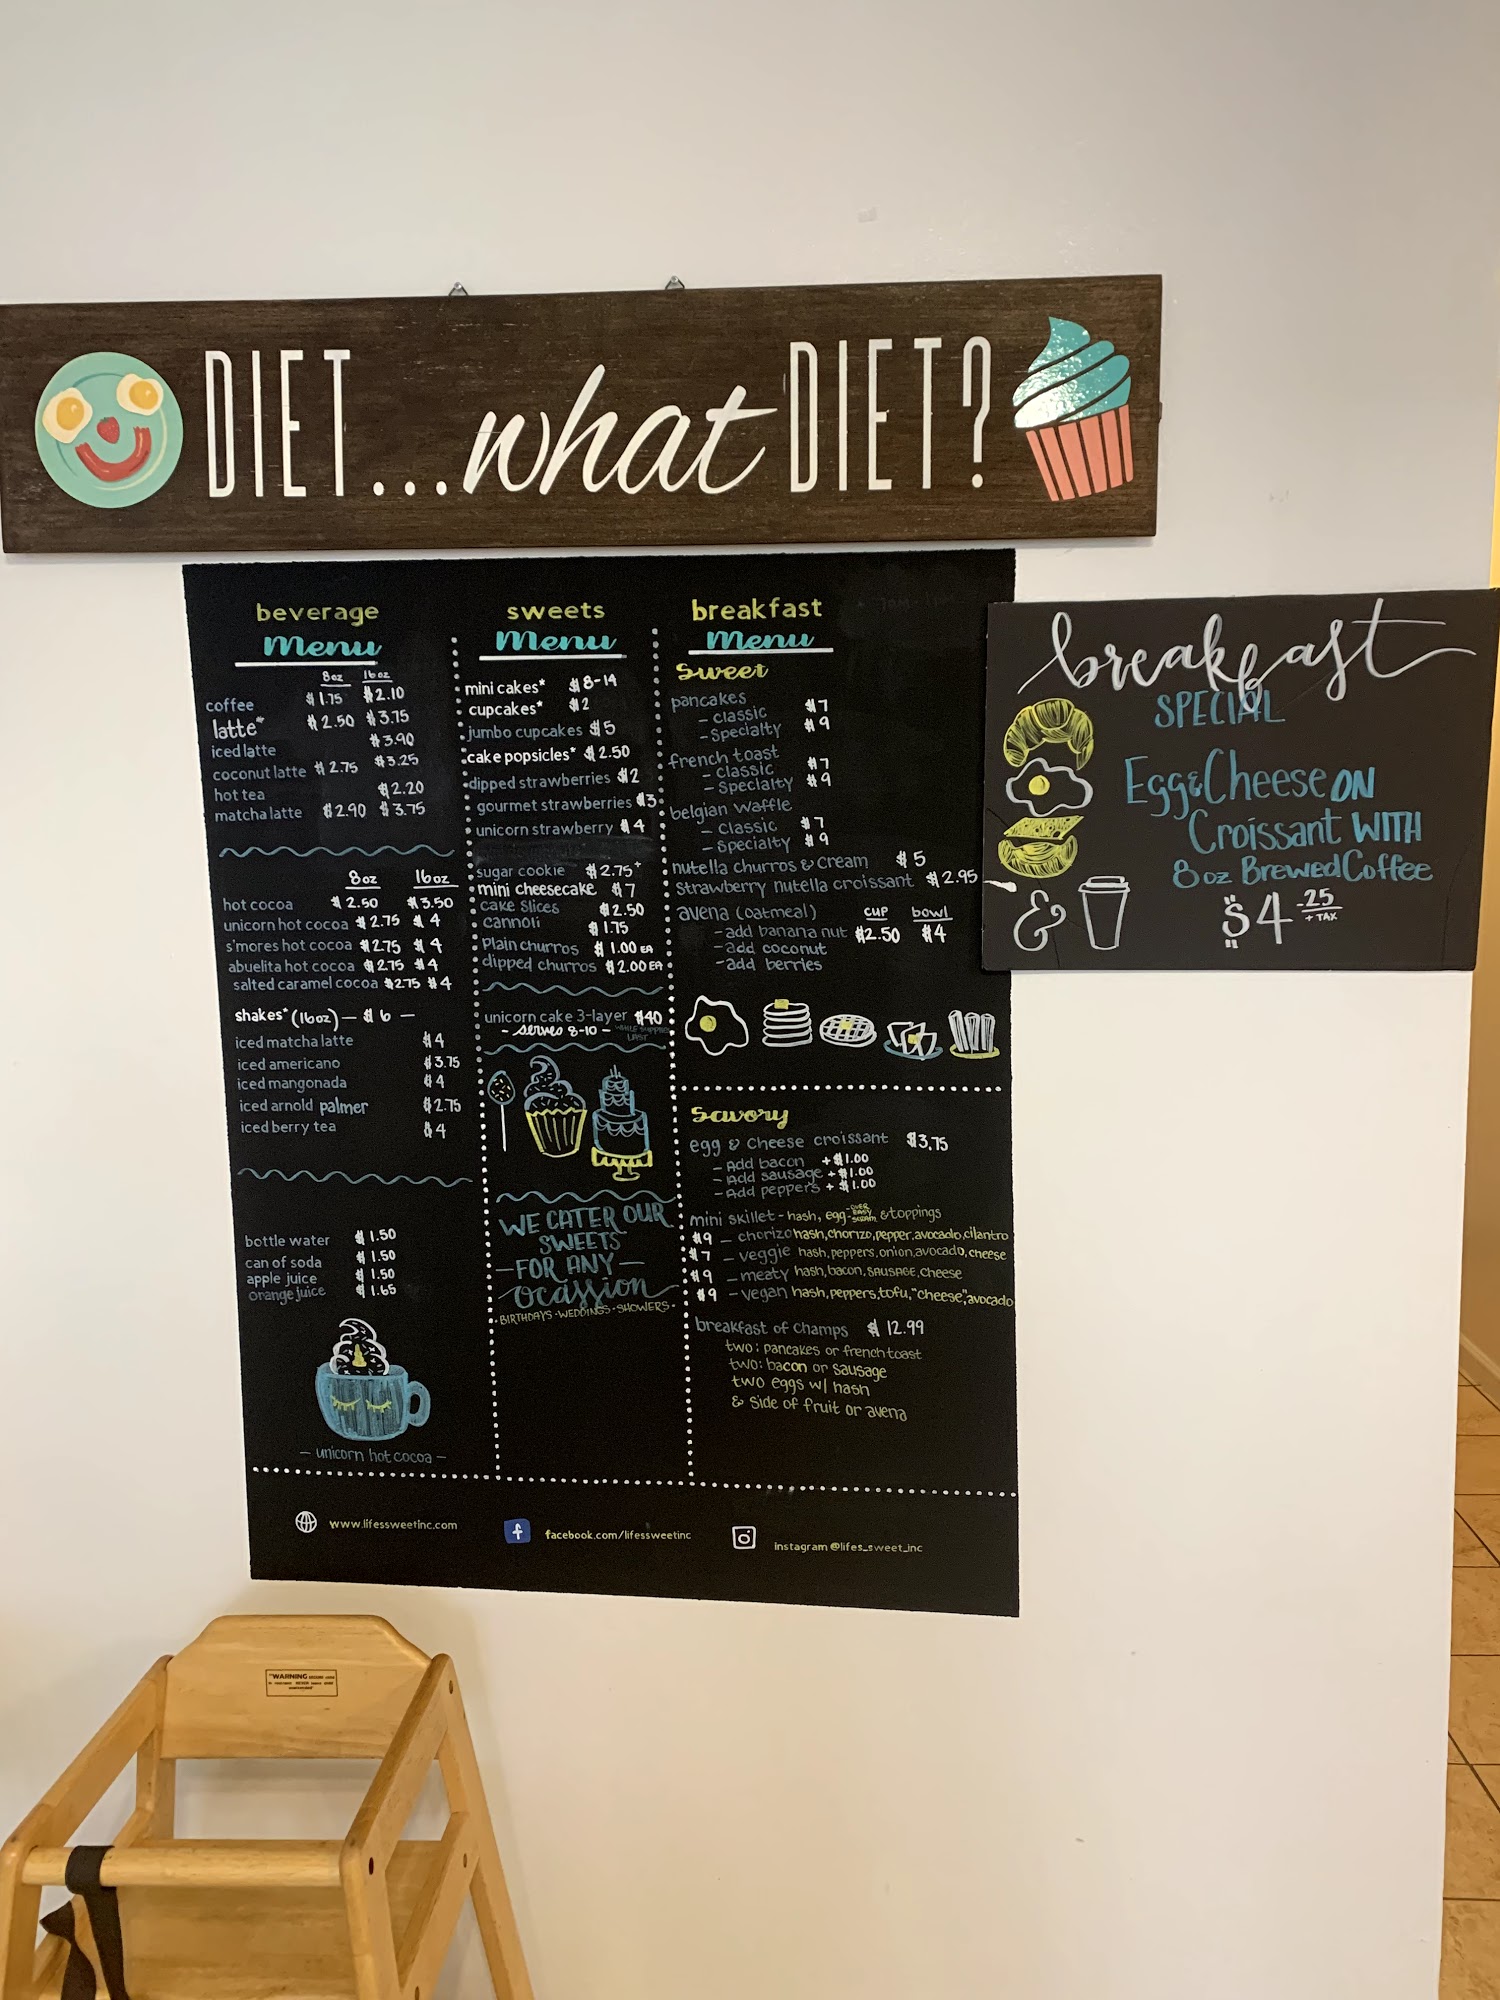 DIET...what DIET?
beverage
Menu
8oz 16oz
coffee $1.75 $2.10
latte* $2.50 $3.75
iced latte $3.90
coconut latte $2.75 $3.25
hot tea $2.20
matcha latte $2.90 $3.75
8oz 16oz
hot cocoa $2.50 $3.50
unicorn hot cocoa $2.75 $4
s'mores hot cocoa $2.75 $4
abuelita hot cocoa $2.75 $4
salted caramel cocoa $2.75 $4
shakes* (16oz) — $6 —
iced matcha latte $4
iced americano $3.75
iced mangonada $4
iced arnold palmer $2.75
iced berry tea $4
bottle water $1.50
can of soda $1.50
apple juice $1.50
orange juice $1.65
— unicorn hot cocoa —
sweets
Menu
mini cakes* $8-14
cupcakes* $2
jumbo cupcakes $5
cake popsicles* $2.50
dipped strawberries $2
gourmet strawberries $3
unicorn strawberry $4
sugar cookie $2.75+
mini cheesecake $7
cake slices $2.50
cannoli $1.75
Plain churros $1.00 EA
dipped churros $2.00 EA
unicorn cake 3-layer $40
- serves 8-10 - WHILE SUPPLIES
LAST
WE CATER OUR
SWEETS
— FOR ANY —
Ocassion
• BIRTHDAYS • WEDDINGS • SHOWERS •
breakfast
Menu
Sweet
pancakes
- classic $7
- Specialty $9
french toast
- classic $7
- Specialty $9
belgian waffle
- classic $7
- Specialty $9
nutella churros & cream $5
strawberry nutella croissant $2.95
avena (oatmeal) cup bowl
- add banana nut $2.50 $4
- add coconut
- add berries
Savory
egg & cheese croissant $3.75
- Add bacon + $1.00
- Add sausage + $1.00
- Add peppers + $1.00
mini skillet - hash, egg - OVER EASY SCRAM & toppings
$9 - chorizo hash, chorizo, pepper, avocado, cilantro
$7 - veggie hash, peppers, onion, avocado, cheese
$9 - meaty hash, bacon, SAUSAGE, cheese
$9 - vegan hash, peppers, tofu, "cheese", avocado
breakfast of champs $12.99
two: pancakes or french toast
two: bacon or sausage
two eggs w/ hash
& side of fruit or avena
www.lifessweetinc.com
facebook.com/lifessweetinc
instagram @lifes_sweet_inc
breakfast
SPECIAL
Egg & Cheese ON
Croissant WITH
8oz Brewed Coffee
& $4.25
+ TAX
"WARNING